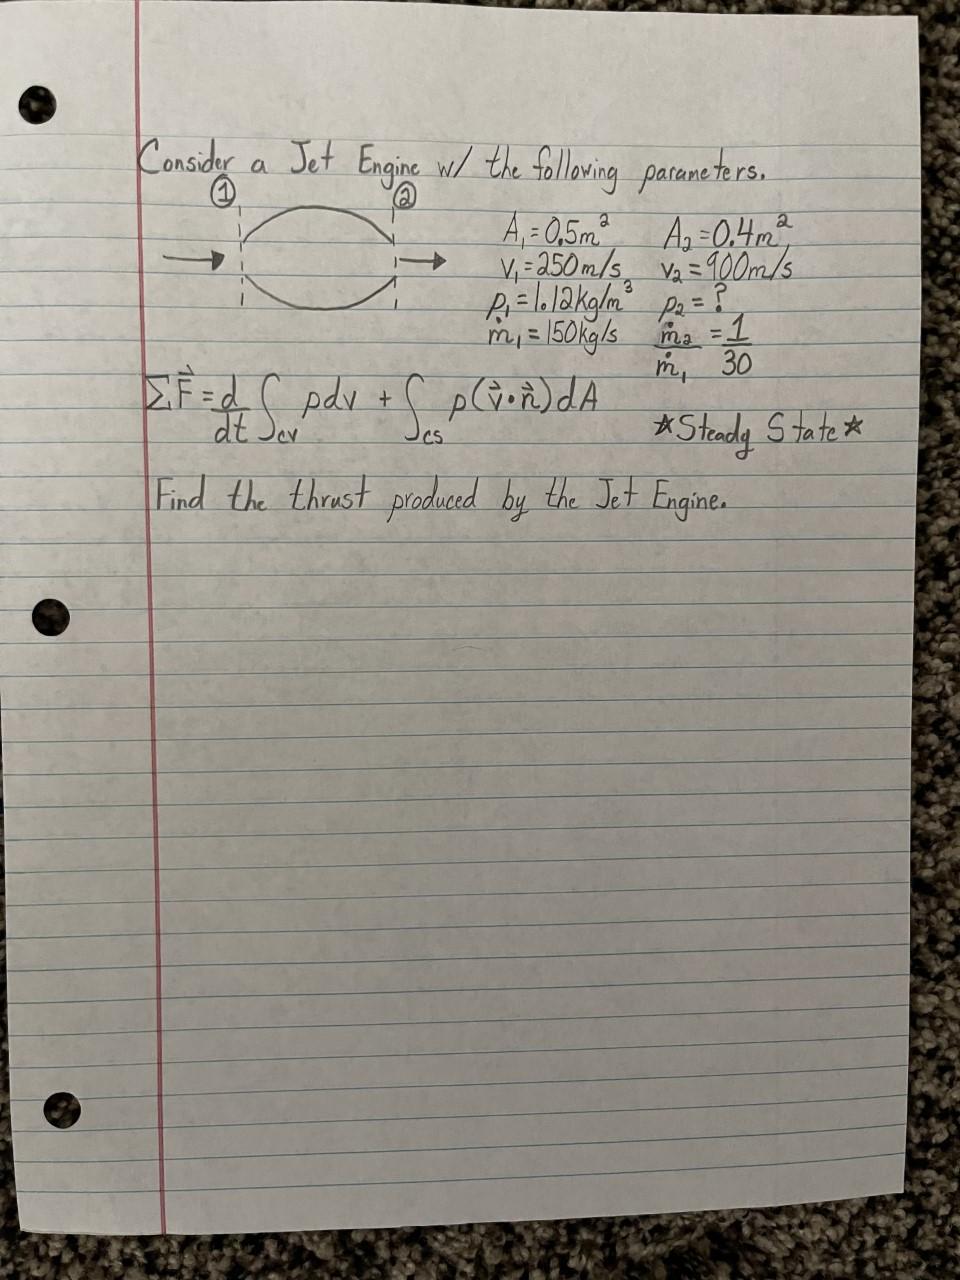 Consider a Jet Engine w/ the following parameters.
① ②
A₁ = 0.5m² A₂ = 0.4m²
v₁ = 250m/s v₂ = 900m/s
ρ₁ = 1.12kg/m³ ρ₂ = ?
ṁ₁ = 150kg/s ṁ₂/ṁ₁ = 1/30
ΣF⃗ = d/dt ∫cv ρdv + ∫cs ρ(v⃗•n⃗)dA
☆Steady State☆
Find the thrust produced by the Jet Engine.